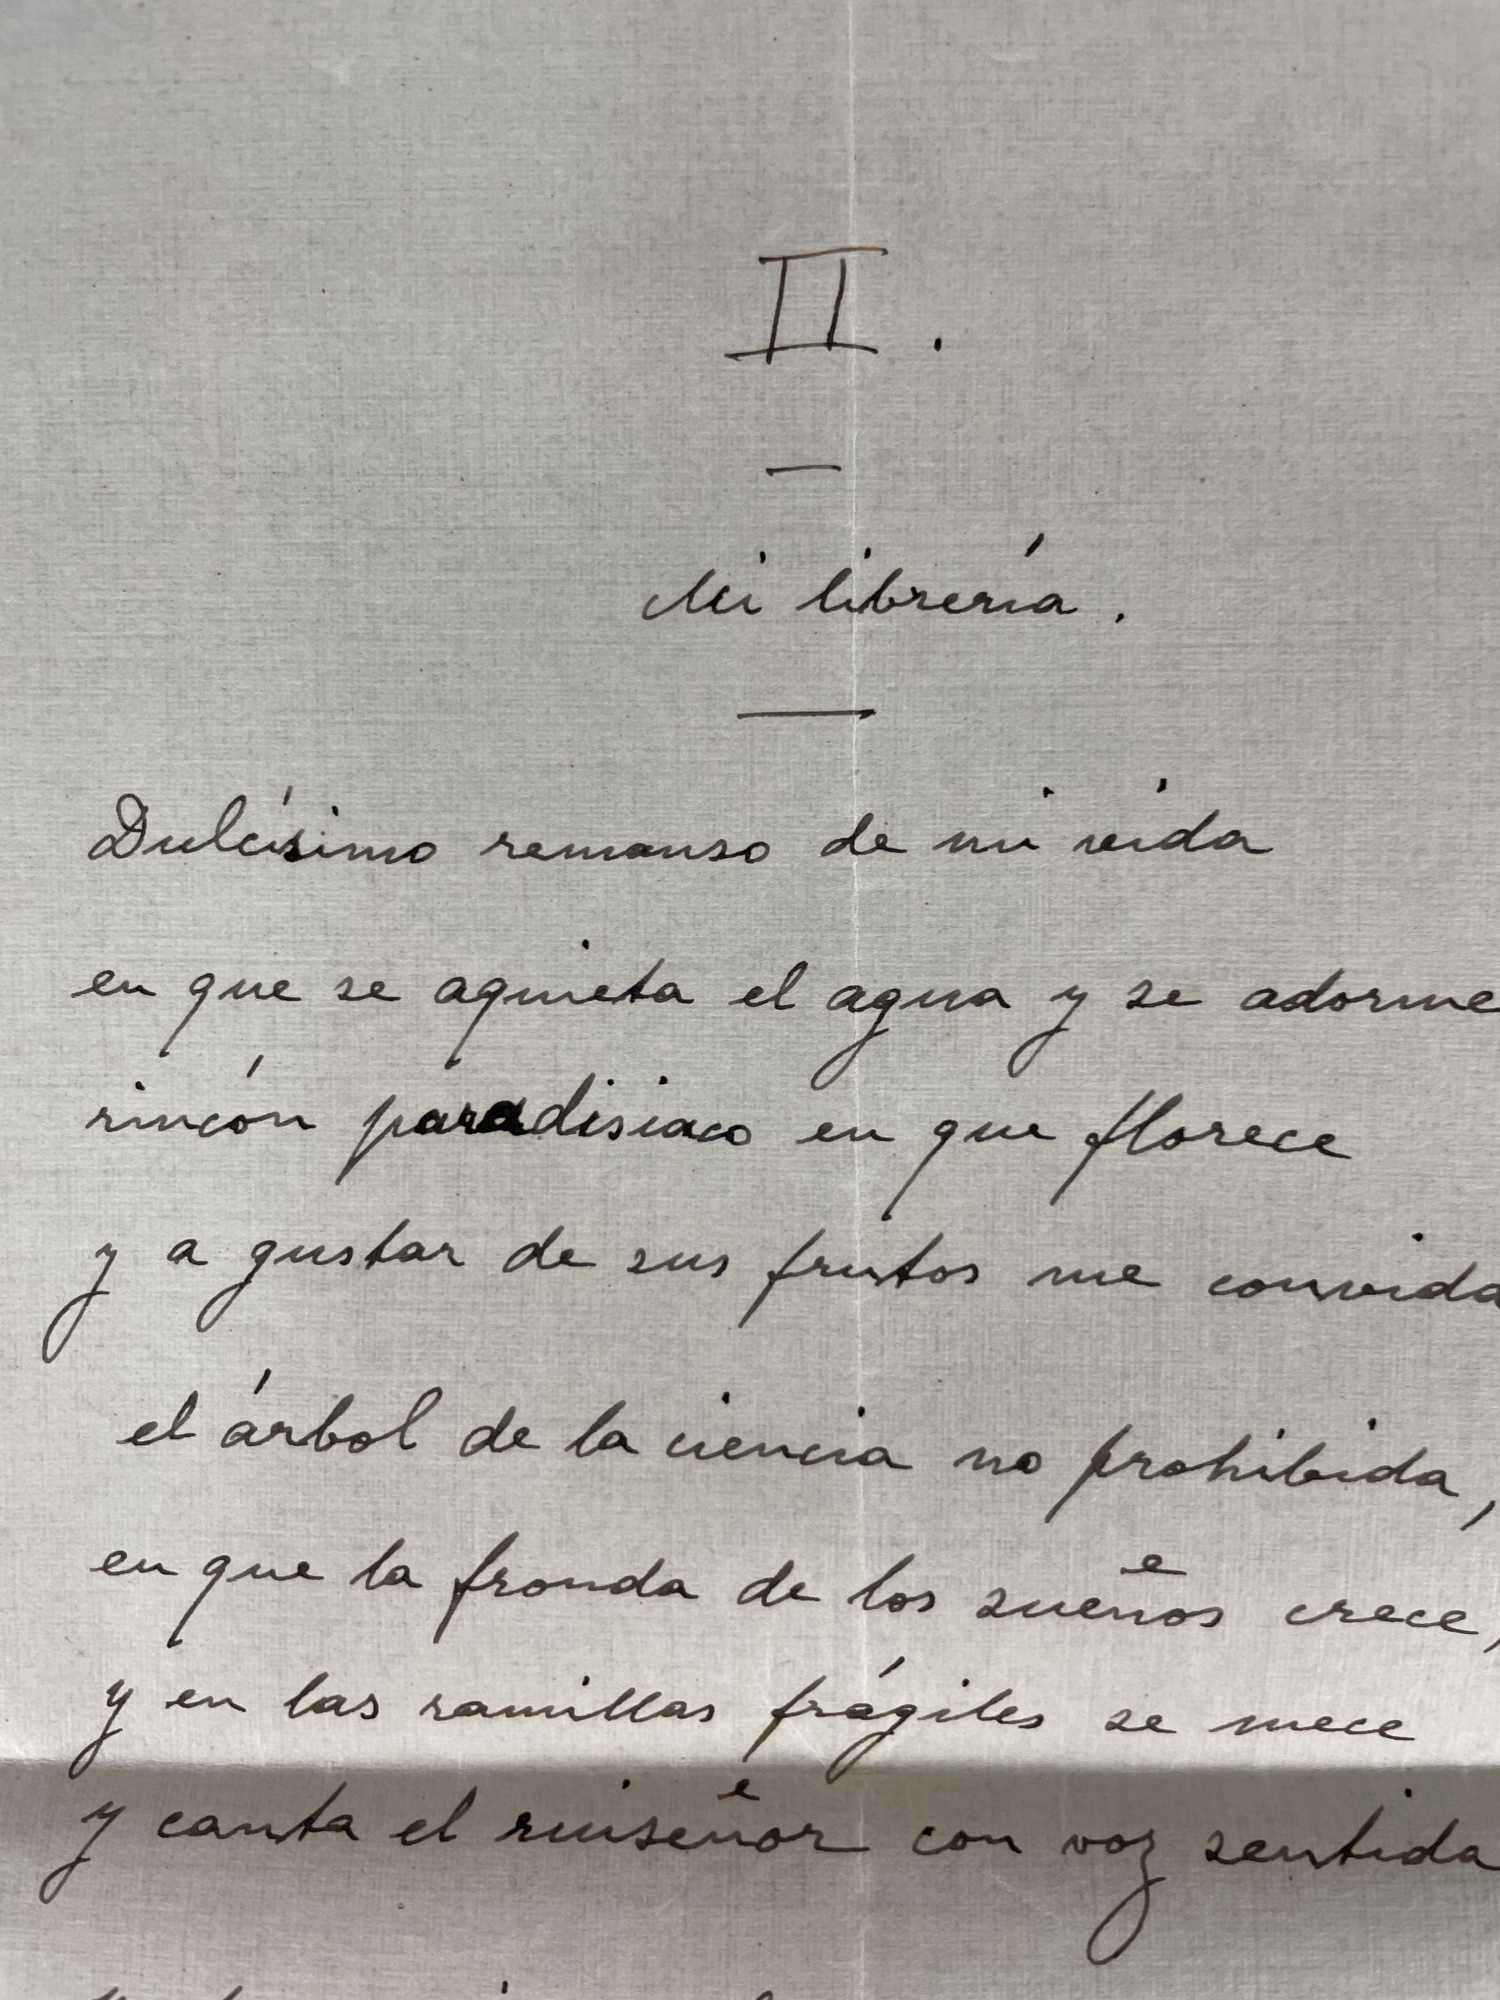 II.
Mi librería.
Dulcísimo remanso de mi vida
en que se aquieta el agua y se adorme
rincón paradisiaco en que florece
y a gustar de sus frutos me convida
el árbol de la ciencia no prohibida,
en que la fronda de los sueños crece,
y en las ramillas frágiles se mece
y canta el ruiseñor con voz sentida